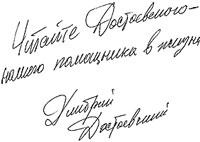 Читайте Достоевского-
нашего помощника в жизни
Дмитрий
Достоевский